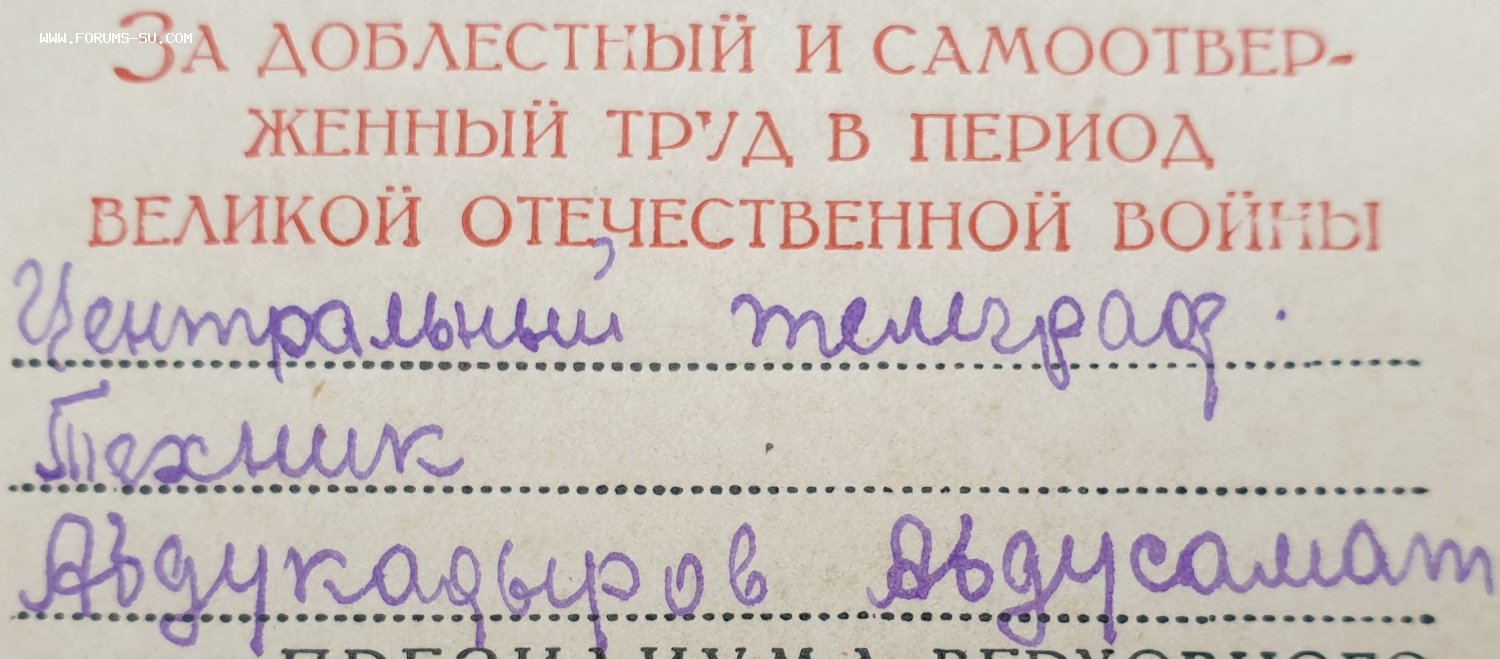 WWW.FORUMS-SU.COM
ЗА ДОБЛЕСТНЫЙ И САМООТВЕР-
ЖЕННЫЙ ТРУД В ПЕРИОД
ВЕЛИКОЙ ОТЕЧЕСТВЕННОЙ ВОЙНЫ
Центральный телеграф.
Техник
Абдукадыров Абдусамат
ПРЕЗИДИУМА ВЕРХОВНОГО